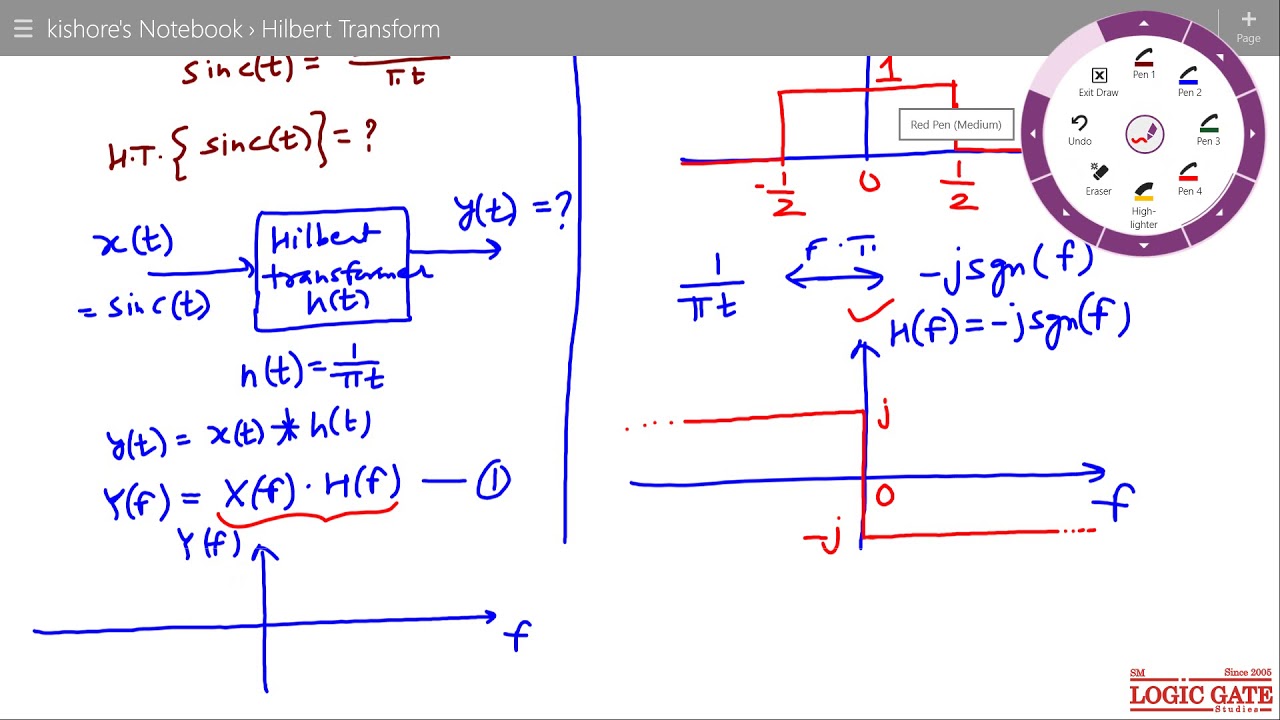 kishore's Notebook › Hilbert Transform
Page
sinc(t) =
π t
H.T. { sinc(t) } = ?
x(t)
= sinc(t)
Hilbert
transformer
h(t)
y(t) = ?
h(t) = 1/πt
y(t) = x(t) * h(t)
Y(f) = X(f) · H(f) — ①
Y(f)
f
1
-1/2
0
1/2
1/πt ⟷ -jsgn(f)
F.T.
✓ H(f) = -jsgn(f)
j
0
f
-j
Red Pen (Medium)
Pen 1
Exit Draw
Pen 2
Undo
Pen 3
Eraser
Pen 4
High-
lighter
SM
Since 2005
LOGIC GATE
Studies